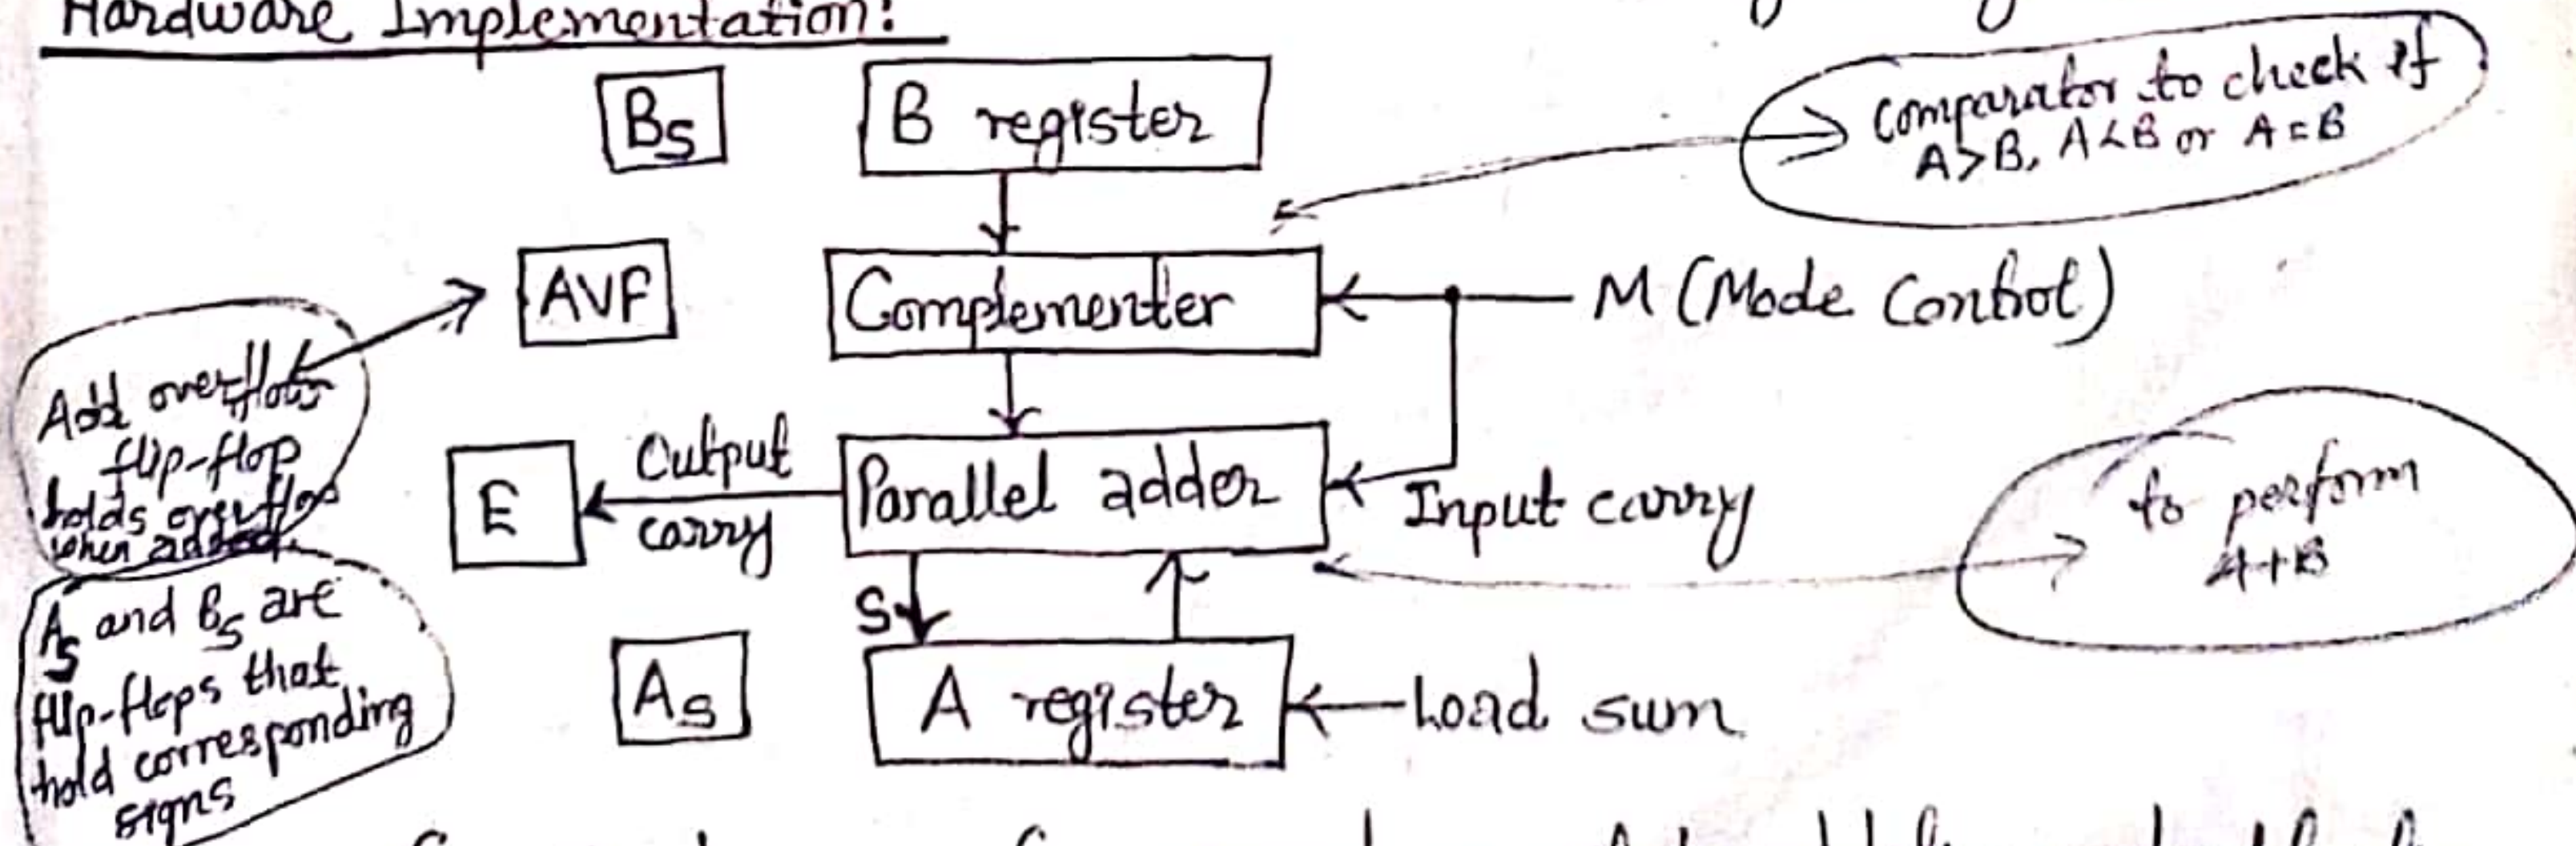 Hardware Implementation:
Bs
B register
comparator to check if
A>B, A<B or A=B
AVF
Complementer
M (Mode Control)
Add overflow
flip-flop
holds overflow
when added.
E
Output
carry
Parallel adder
Input carry
to perform
A+B
S
As and Bs are
flip-flops that
hold corresponding
signs
As
A register
Load sum